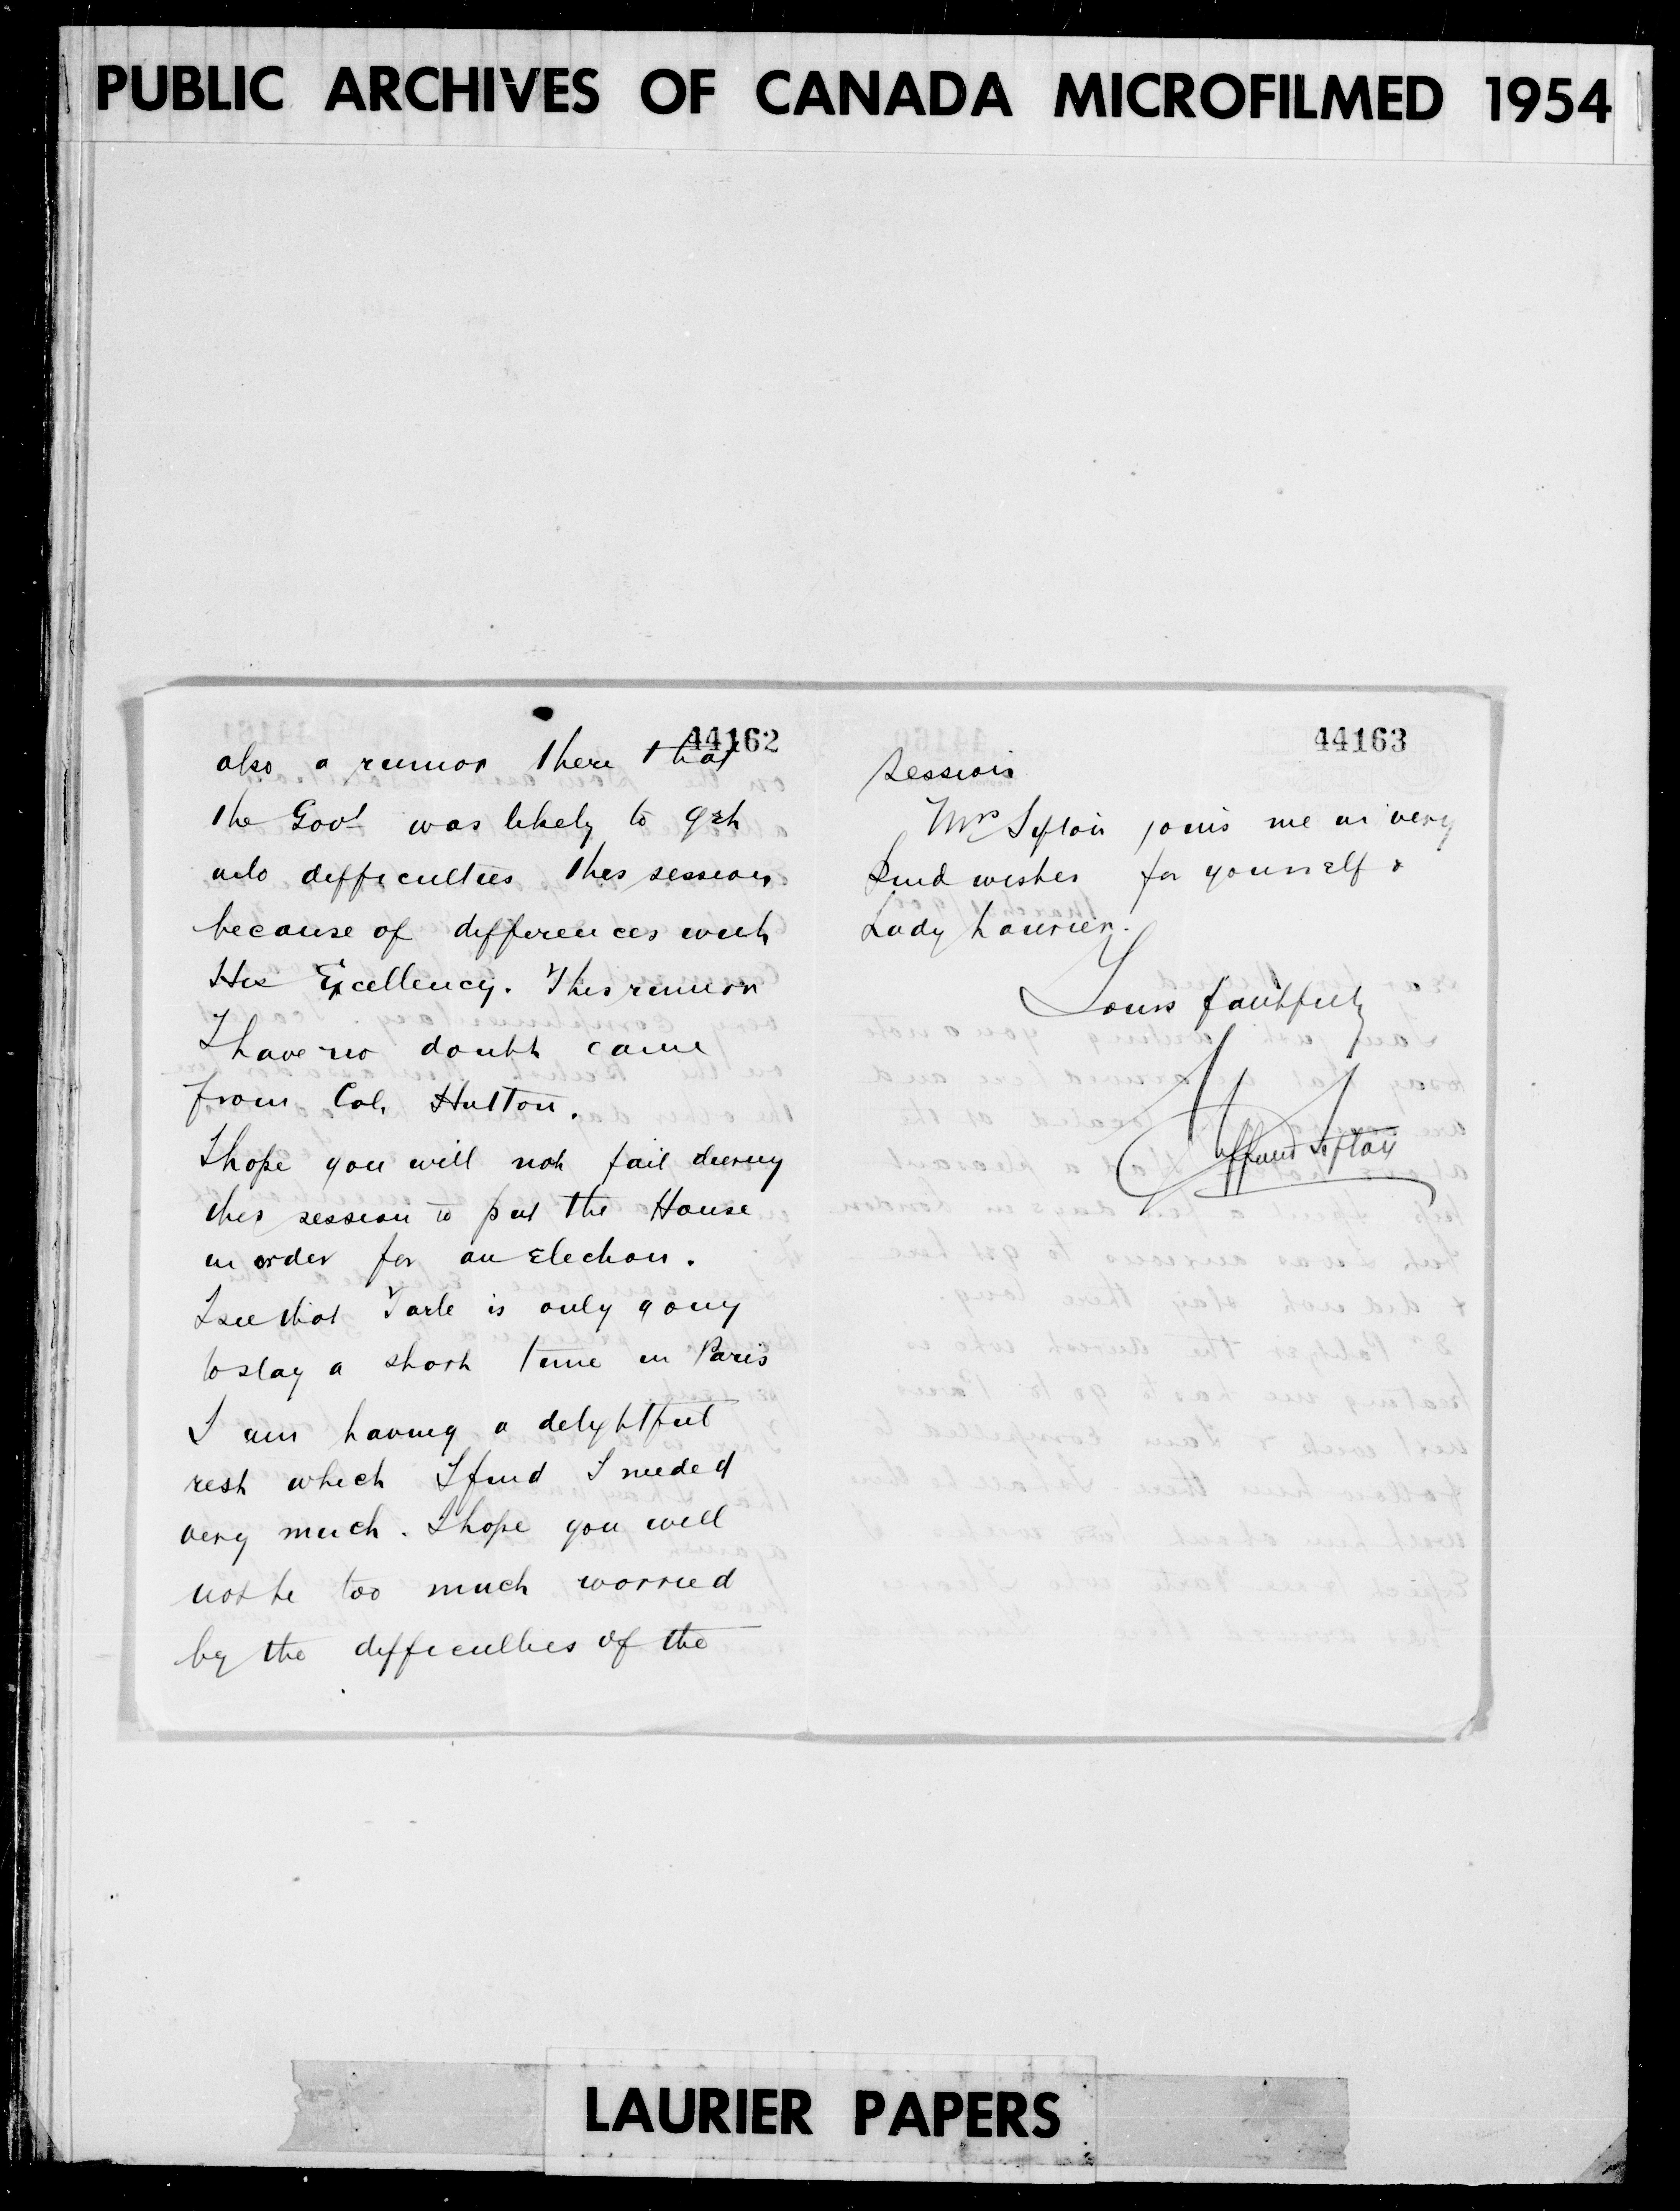 PUBLIC ARCHIVES OF CANADA MICROFILMED 1954
44162
also a rumor there that
the Govt was likely to get
into difficulties this session
because of differences with
His Excellency. This rumor
I have no doubt came
from Col. Hutton.
I hope you will not fail during
this session to put the House
in order for an Election.
I see that Tarte is only going
to stay a short time in Paris
I am having a delightful
rest which I find I needed
very much. I hope you will
not be too much worried
by the difficulties of the
44163
session
Mrs Sifton joins me in very
kind wishes for yourself &
Lady Laurier.
Yours faithfully
Clifford Sifton
LAURIER PAPERS